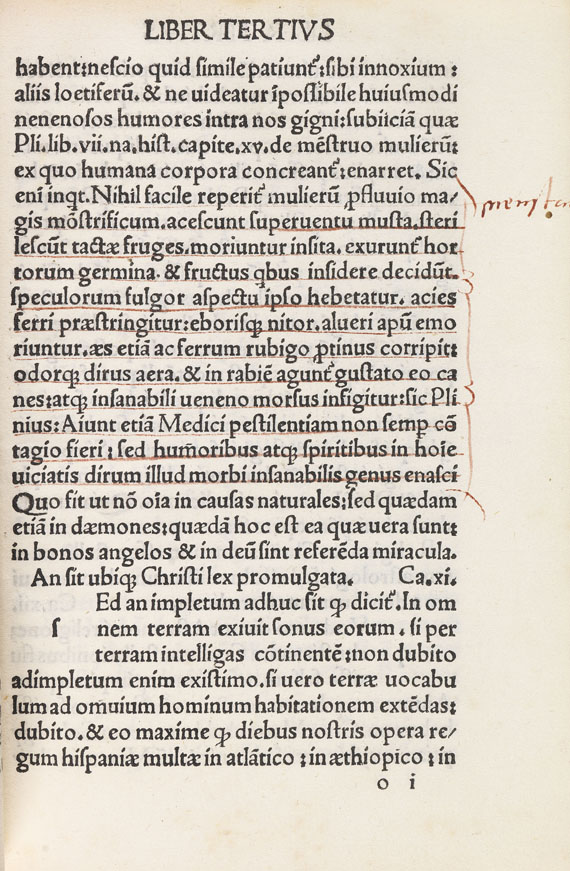 LIBER TERTIVS
habent:nescio quid simile patiunt᷑:sibi innoxium :
aliis loetiferū. & ne uideatur ipossibile huiusmodi
nenenosos humores intra nos gigni:subiiciā quæ
Pli.lib.vii.na.hist.capite.xv.de mēstruo mulierū:
ex quo humana corpora concreant᷑:enarret. Sic
eni inqt.Nihil facile reperit᷑ mulierū ꝓfluuio ma/
gis mōstrificum.acescunt superuentu musta.steri
lescūt tactæ fruges.moriuntur insita. exurunt᷑ hor
torum germina. & fructus qbus insidere decidūt.
speculorum fulgor aspectu ipso hebetatur. acies
ferri præstringitur:eborisqꝫ nitor.aluei apū emo
riuntur.æs etiā ac ferrum rubigo ꝓtinus corripit:
odorqꝫ dirus aera. & in rabiē agunt᷑ gustato eo ca
nes:atqꝫ insanabili ueneno morsus infigitur:sic Pli
nius: Aiunt etiā Medici pestilentiam non semp cō
tagio fieri : sed humoribus atqꝫ spiritibus in hoie
uiciatis dirum illud morbi insanabilis genus enasci
Quo fit ut nō oia in causas naturales:sed quædam
etiā in dæmones:quædā hoc est ea quæ uera sunt:
in bonos angelos & in deū sint referēda miracula.
An sit ubiqꝫ Christi lex promulgata. Ca.xi.
Ed an impletum adhuc sit ꝙ dicit᷑.In om
s nem terram exiuit sonus eorum . si per
terram intelligas cōtinentē:non dubito
adimpletum enim existimo.si uero terræ uocabu
lum ad omuium hominum habitationem extēdas:
dubito. & eo maxime ꝙ diebus nostris opera re/
gum hispaniæ multæ in atlātico : in æthiopico : in
o i